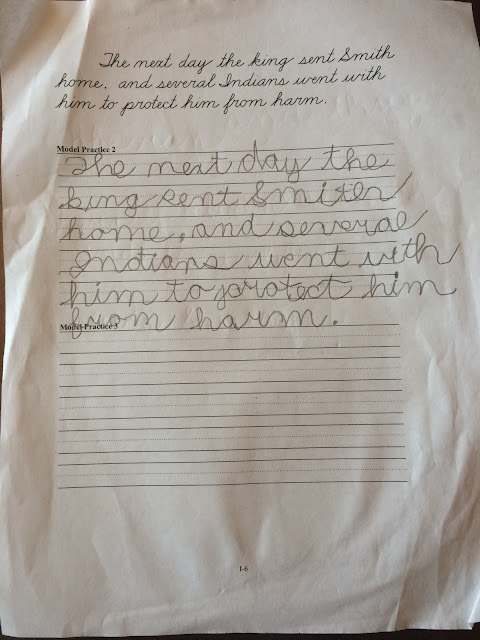 The next day the king sent Smith
home, and several Indians went with
him to protect him from harm.
Model Practice 2
The next day the
king sent Smiten
home, and several
Indians went with
him to protect him
from harm.
Model Practice 3
1-6